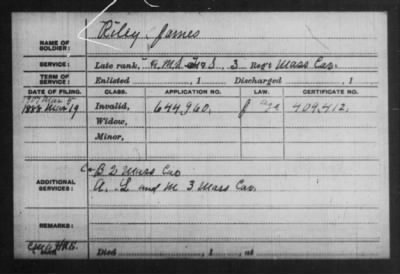 NAME OF SOLDIER: Riley, James
SERVICE: Late rank, 3 Reg't Mass Cav.
TERM OF SERVICE: Enlisted , 1 Discharged , 1
DATE OF FILING. CLASS. APPLICATION NO. LAW. CERTIFICATE NO.
1888 19 Invalid, 644,960. 409,412.
Widow,
Minor,
ADDITIONAL SERVICES: Co B 2 Mass Cav
A. L and M 3 Mass Cav.
REMARKS:
Died , 1 , at